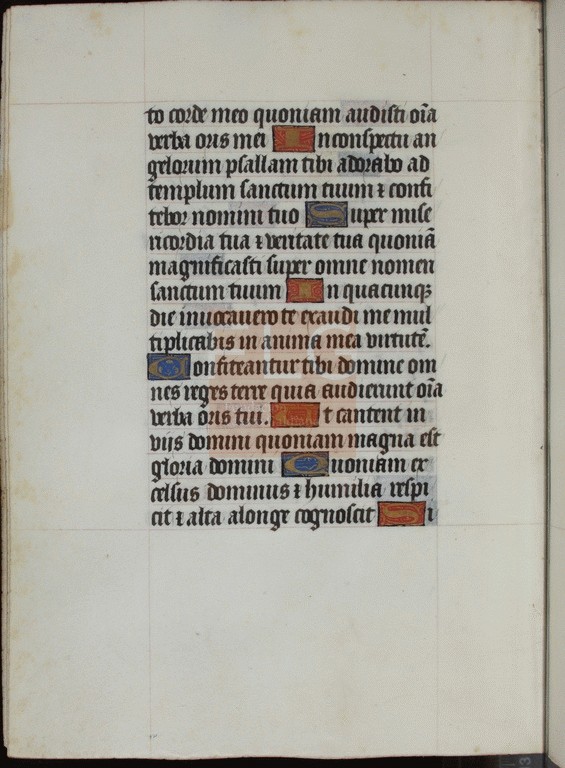 to corde meo quoniam audisti oīa
verba oris mei In conspectu an
gelorum psallam tibi adorabo ad
templum sanctum tuum ⁊ confi
tebor nomini tuo Super mise
ricordia tua ⁊ veritate tua quoniā
magnificasti super omne nomen
sanctum tuum In quacunqꝫ
die invocavero te exaudi me mul
tiplicabis in anima mea virtutē.
Confiteantur tibi domine om
nes reges terre quia audierunt oīa
verba oris tui. Et cantent in
viis domini quoniam magna est
gloria domini Quoniam ex
celsus dominus ⁊ humilia respi
cit ⁊ alta alonge cognoscit Si